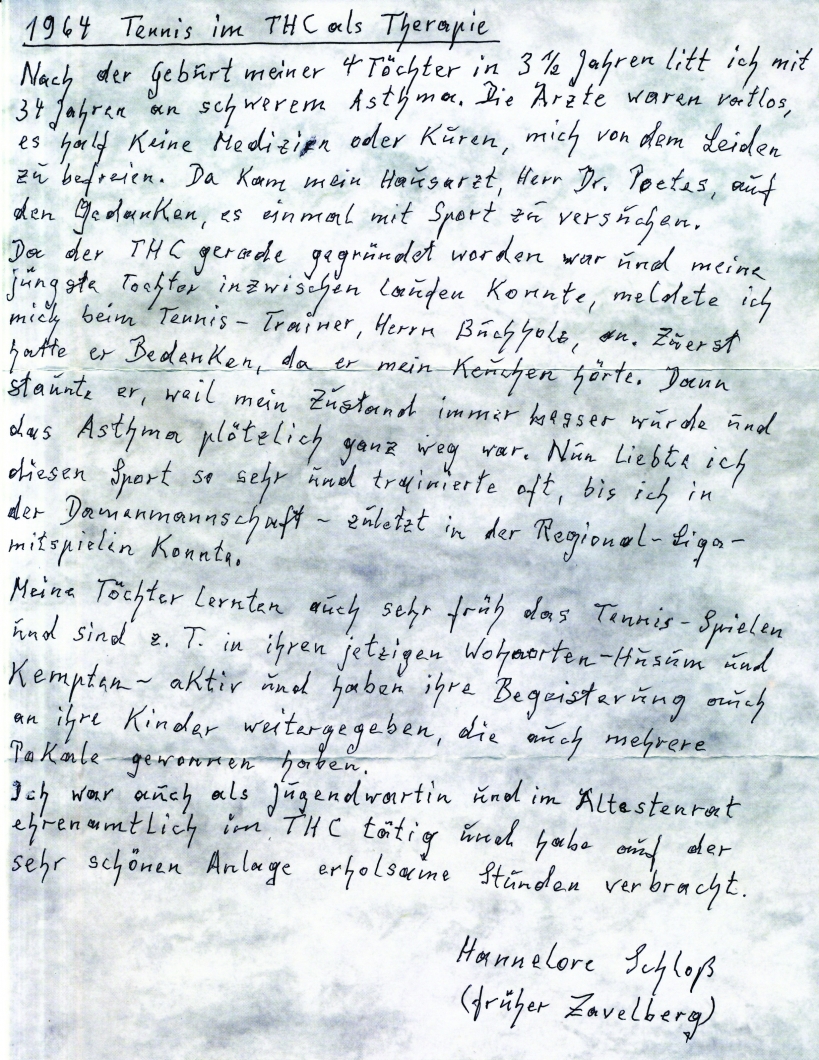 1964 Tennis im THC als Therapie
Nach der Geburt meiner 4 Töchter in 3 1/2 Jahren litt ich mit
34 Jahren an schwerem Asthma. Die Ärzte waren ratlos,
es half keine Medizin oder Kuren, mich von dem Leiden
zu befreien. Da kam mein Hausarzt, Herr Dr. Poetes, auf
den Gedanken, es einmal mit Sport zu versuchen.
Da der THC gerade gegründet worden war und meine
jüngste Tochter inzwischen laufen konnte, meldete ich
mich beim Tennis-Trainer, Herrn Buchholz, an. Zuerst
hatte er Bedenken, da er mein Keuchen hörte. Dann
staunte er, weil mein Zustand immer besser wurde und
das Asthma plötzlich ganz weg war. Nun liebte ich
diesen Sport so sehr und trainierte oft, bis ich in
der Damenmannschaft - zuletzt in der Regional-Liga-
mitspielen konnte.
Meine Töchter lernten auch sehr früh das Tennis-Spielen
und sind z. T. in ihren jetzigen Wohnorten-Husum und
Kempten- aktiv und haben ihre Begeisterung auch
an ihre Kinder weitergegeben, die auch mehrere
Pokale gewonnen haben.
Ich war auch als Jugendwartin und im Ältestenrat
ehrenamtlich im THC tätig und habe auf der
sehr schönen Anlage erholsame Stunden verbracht.
Hannelore Schloß
(früher Zavelberg)